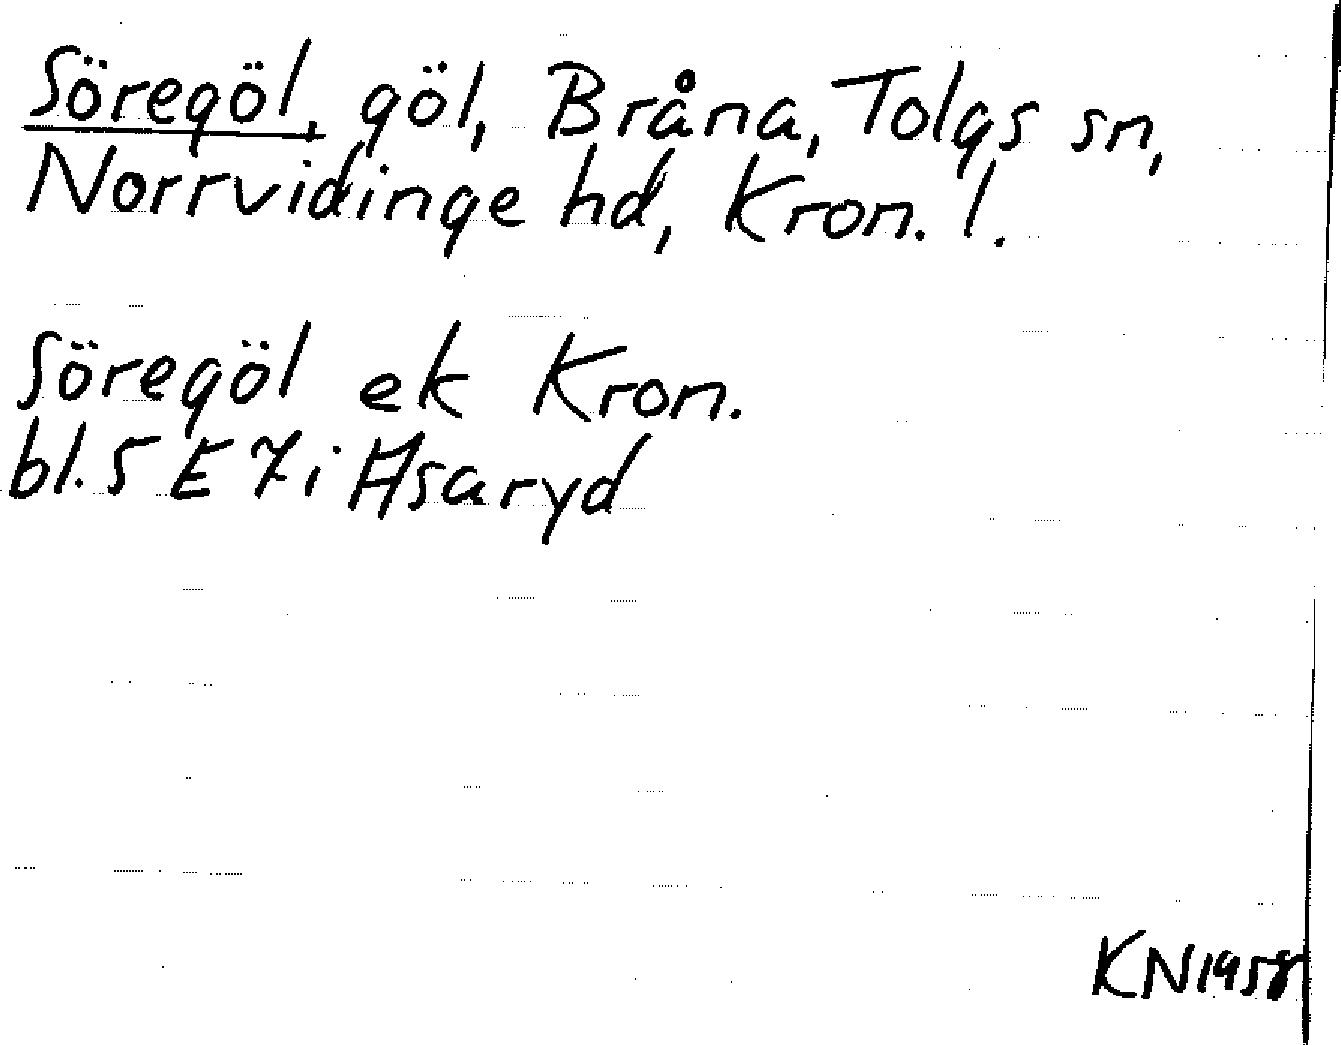 Söregöl, göl, Bråna, Tolgs sn,
Norrvidinge hd, Kron. l.
Söregöl ek Kron.
bl. 5 E 7 i Asaryd
KN 1958